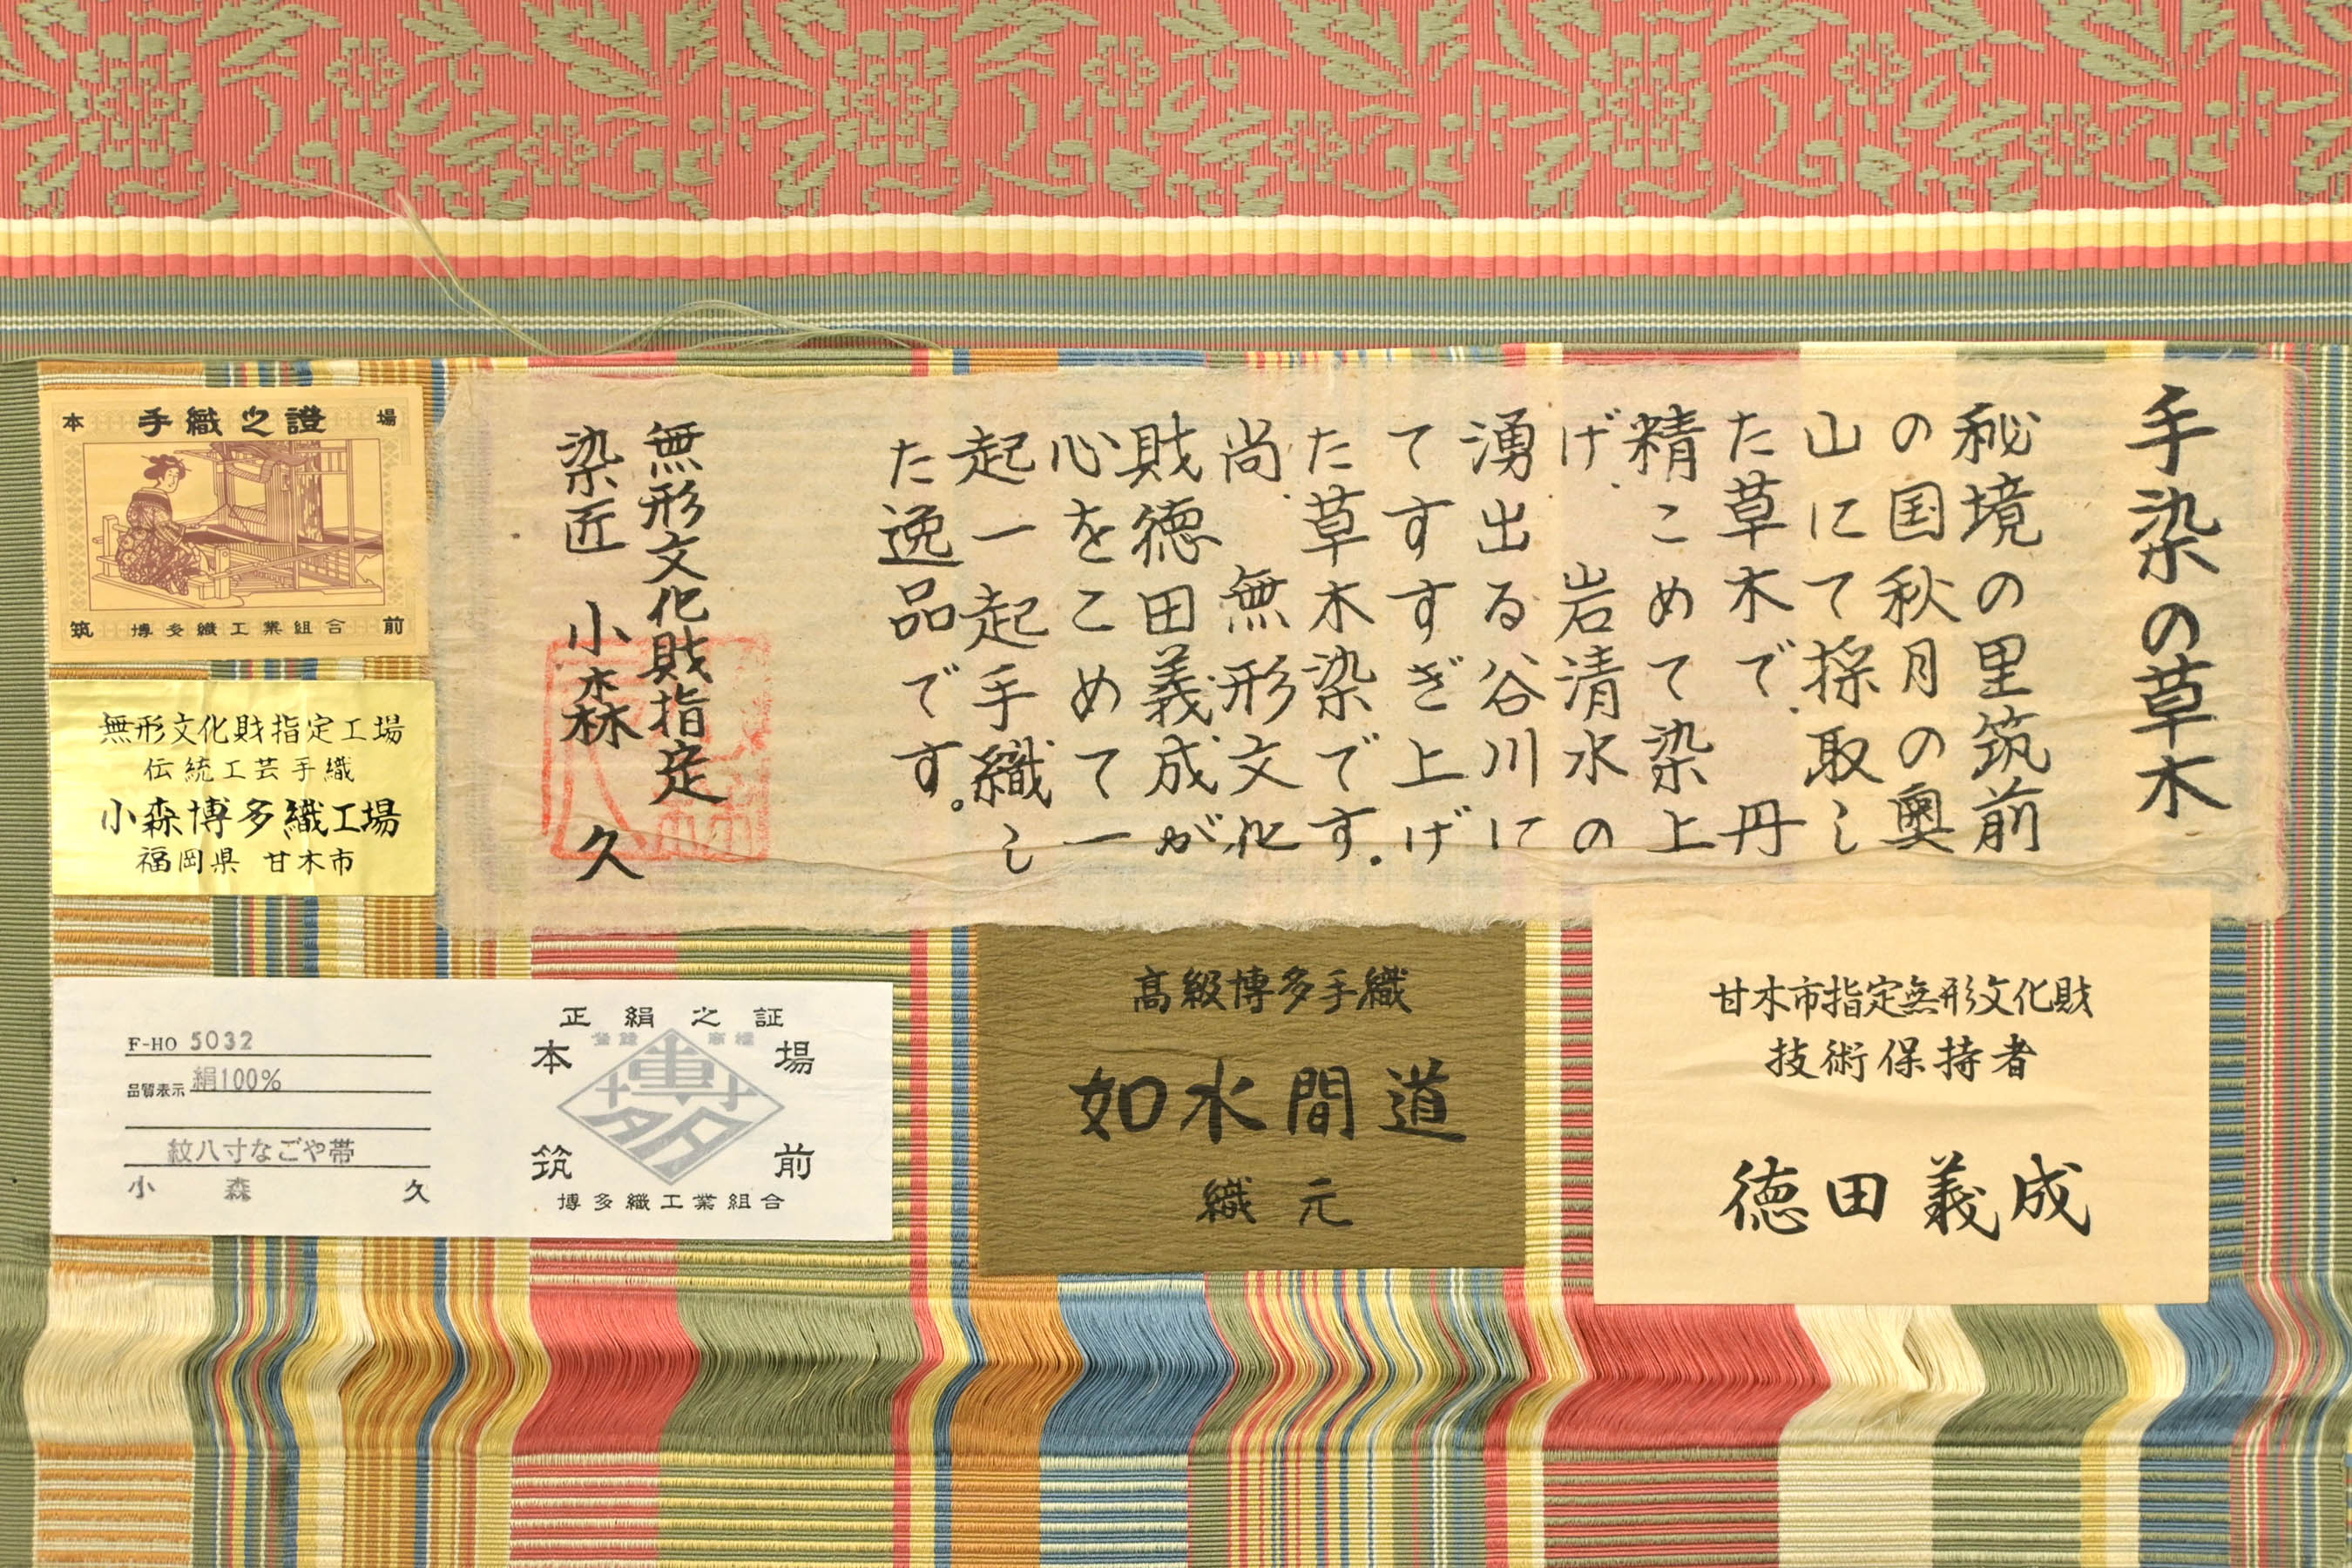 手染の草木
秘境の里筑前
の国秋月の奥
山にて採取し
た草木で、丹
精こめて染上
げ、岩清水の
湧出る谷川に
てすすぎ上げ
た草木染です。
尚、無形文化
財徳田義成が
心をこめて一
起一起手織し
た逸品です。
無形文化財指定
染匠 小森 久
本 手織之證 場
筑 博多織工業組合 前
無形文化財指定工場
伝統工芸手織
小森博多織工場
福岡県 甘木市
F-HO 5032
品質表示 絹100%
紋八寸なごや帯
小 森 久
正絹之証
本 場
登録 商標
博多
筑 前
博多織工業組合
高級博多手織
如水間道
織元
甘木市指定無形文化財
技術保持者
徳田義成